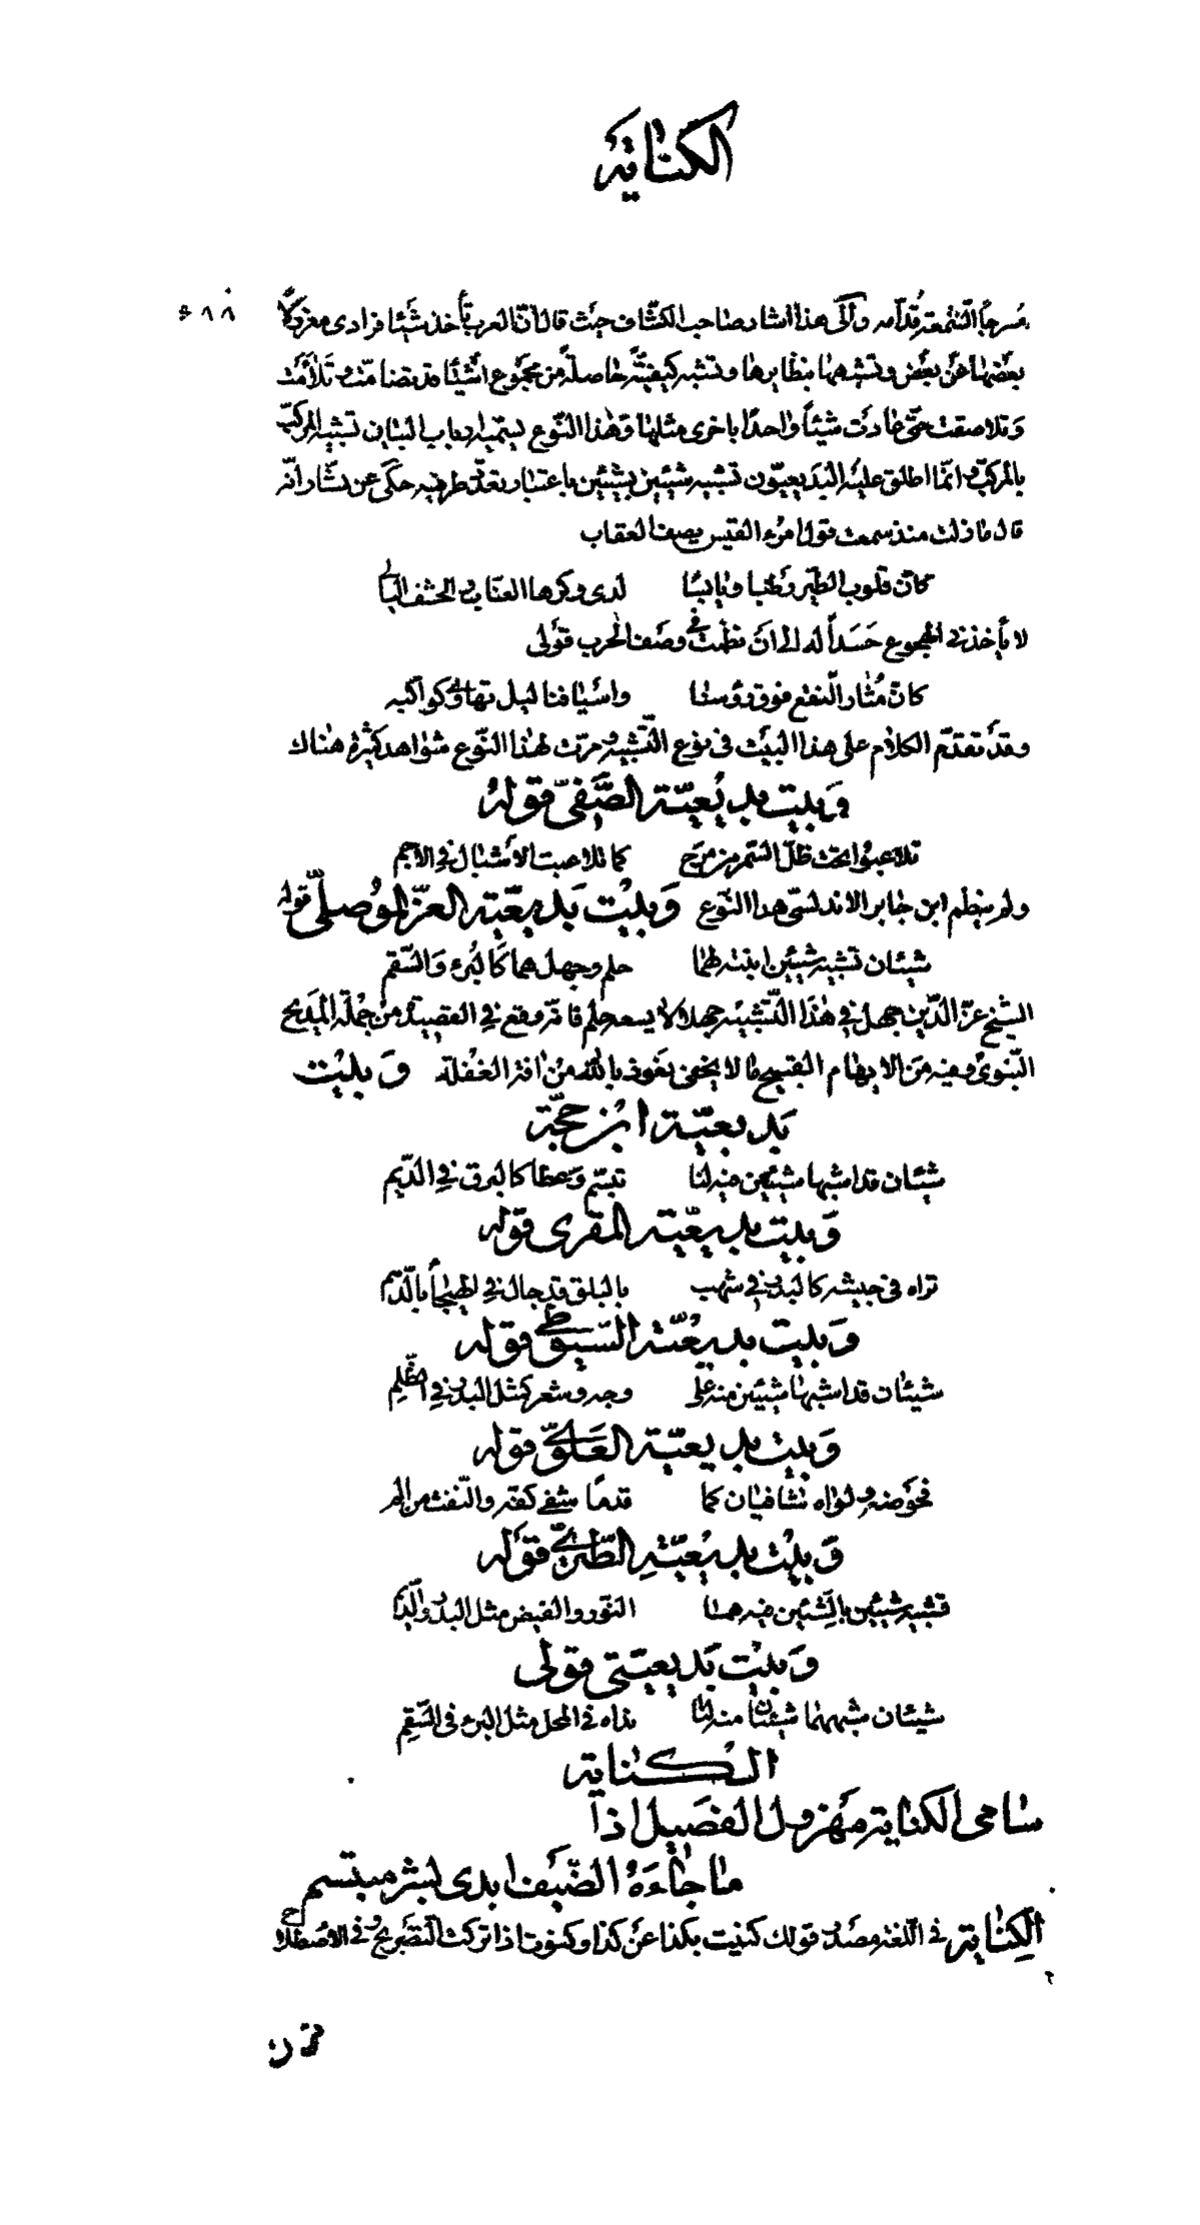 الكناية
مسرجا الشمعة قدامه والى هذا اشار صاحب الكشاف حيث قال ان العرب تأخذ شيئا فرادى معزولا
بعضها عن بعض وتشبهها بنظايرها وتشبه كيفية حاصلة من مجموع اشياء قد تضامت وتلائمت
وتلاصقت حتى عادت شيئا واحدا باخرى مثلها وهذا النوع يسميه ارباب البيان تشبيه المركب
بالمركب وانما اطلق عليه البديعيون تشبيه شيئين بشيئين باعتبار تعدد طرفيه حكى عن بشار انه
قال ما زلت منذ سمعت قول امرء القيس يصف العقاب
كان قلوب الطير رطبا ويابسا لدى وكرها العناب والحشف البالى
لا يأخذنى الهجوع حسدا له الى ان نظمت فى وصف الحرب قولى
كان مثار النقع فوق رؤسنا واسيافنا ليل تهاوى كواكبه
وقد تقدم الكلام على هذا البيت فى نوع التشبيه ومرت لهذا النوع شواهد كثيرة هناك
وبيت بديعية الصفى قوله
تلاعبوا تحت ظل السمر من مرح كما تلاعبت الاشبال فى الاجم
ولم ينظم ابن جابر الاندلسى هذا النوع وبيت بديعية العز الموصلى قوله
شيئان تشبيه شيئين لهما حلم وجهل هما كالبرء والسقم
الشيخ عز الدين جهل فى هذا التشبيه جهلا لا يسعه حلم فانه وقع فى القصيدة من جملة المديح
النبوى وفيه من الايهام القبيح ما لا يخفى نعوذ بالله من افة الغفلة وبيت
بديعية ابن حجة
شيئان قد اشبها شيئين فيه لنا تبسم وعطا كالبرق فى الديم
وبيت بديعية المقرى قوله
تراه فى جيشه كالبدر فى شهب بالبلق قد جال فى الهيجا بالدهم
وبيت بديعية السيوطى قوله
شيئان قد اشبها شيئين منه على وجه وشعر كمثل البدر فى الظلم
وبيت بديعية العلوى قوله
فحوضه ولواه نشافيان كما قدما شفى كفه والنفث من الم
وبيت بديعية الطبرى قوله
تشبيه شيئين بالشيئين فيه هما النور والفيض مثل البدر والديم
وبيت بديعيتى قولى
شيئان شبههما شيئان منه لنا نداه فى المحل مثل البرء فى السقم
الكناية
سامى الكناية مهزول الفصيل اذا
ما جاءه الضيف ابدى لبشر مبتسم
الكناية فى اللغة مصدر قولك كنيت بكذا عن كذا وكنوت اذا تركت التصريح وفى الاصطلاح